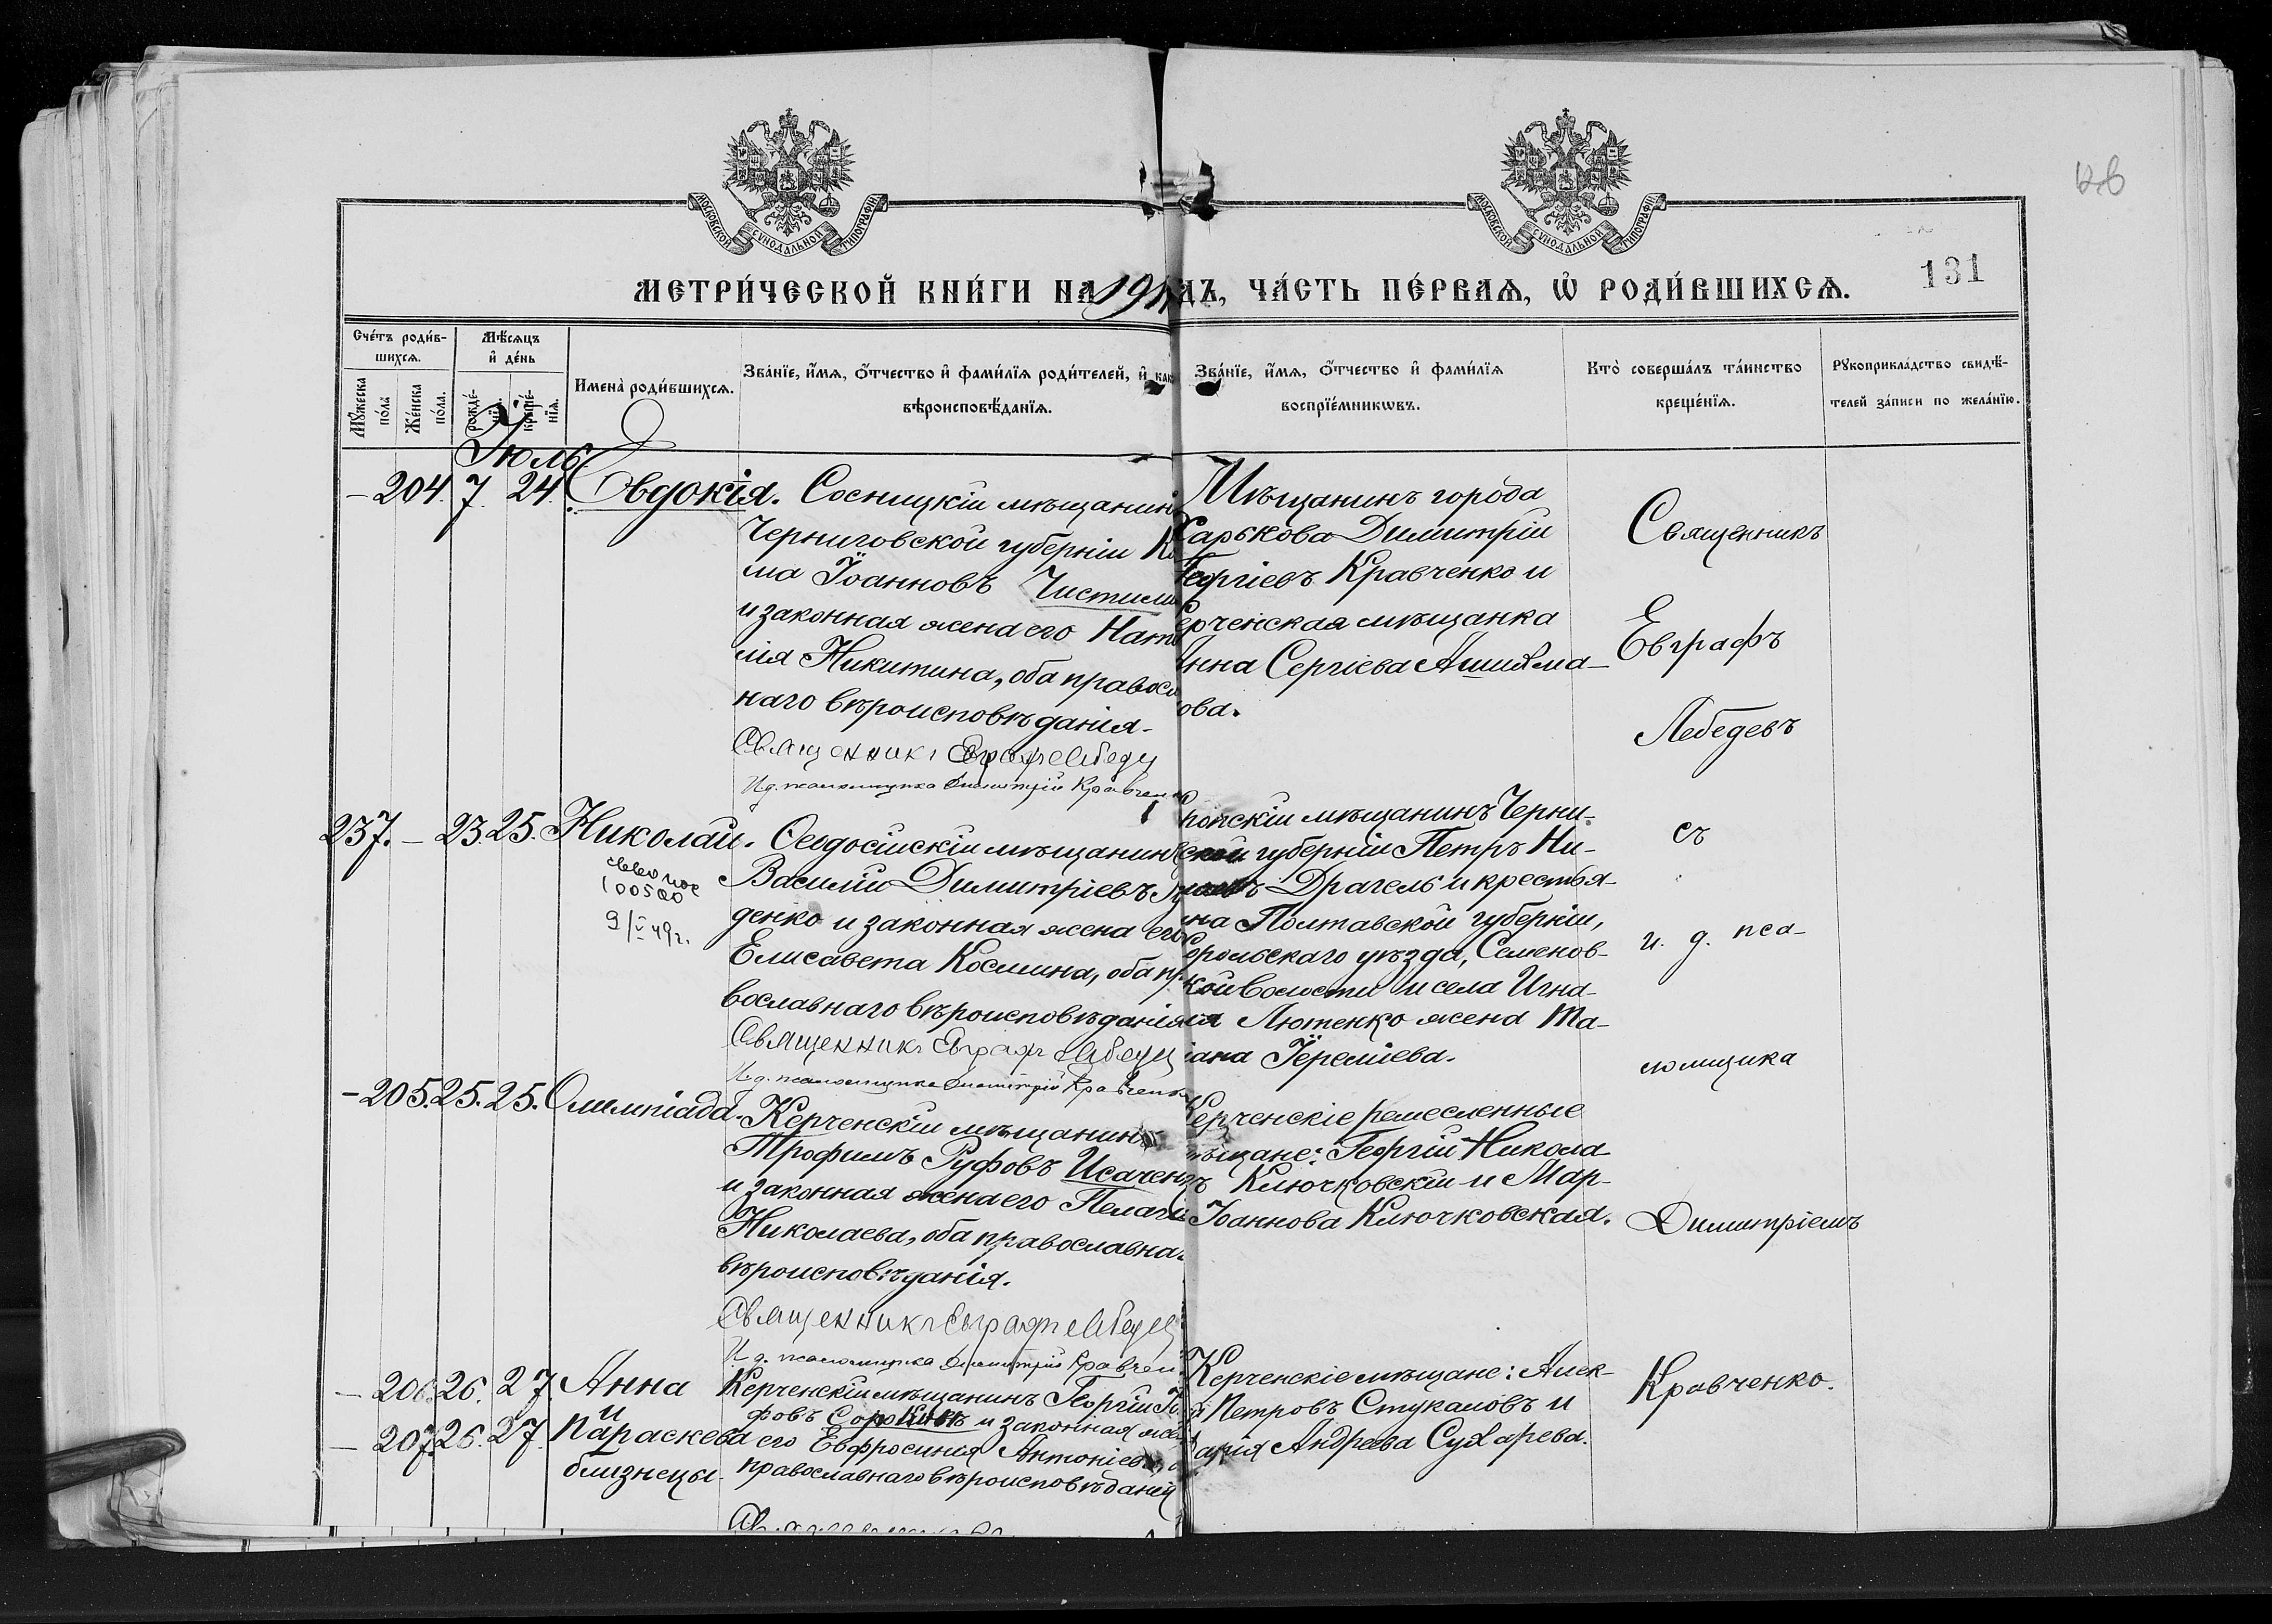 126
131
МОСКОВСКОЙ СѴНОДАЛЬНОЙ ТИПОГРАФІИ
МОСКОВСКОЙ СѴНОДАЛЬНОЙ ТИПОГРАФІИ
МЕТРИ́ЧЕСКОЙ КНИ́ГИ НА 191 ДЪ, ЧА́СТЬ ПЕ́РВАѦ, Ѡ҆ РОДИ́ВШИХСѦ.
Сче́тъ роди́в-
шихсѧ.
Мꙋ́жеска по́ла
Же́нска по́ла.
Мѣ́сѧцъ и҆ де́нь
рожде́нїѧ.
креще́нїѧ.
Имена̀ роди́вшихсѧ.
Зва́нїе, и҆́мѧ, ѻ҆́тчество и҆ фами́лїѧ роди́телей, и҆ как
вѣроисповѣ́данїѧ.
Зва́нїе, и҆́мѧ, ѻ҆́тчество и҆ фами́лїѧ
воспрїе́мникѡвъ.
Кто̀ соверша́лъ та́инство
креще́нїѧ.
Рꙋкоприкла́дство свидѣ́-
телей за́писи по жела́нїю.
Іюль
— 204. 7. 24. Евдокія.
Сосницкій мѣщанинъ
Черниговской губерніи
ма Іоанновъ
и законная жена его
лія Никитина, оба правосл
наго вѣроисповѣданія.
Священникъ Евграфъ Лебедев
И. д. псаломщика Димитрій Кравчен
Мѣщанинъ города
Харькова Димитрій
Георгіевъ Кравченко и
ерченская мѣщанка
Анна Сергіева
ова.
Священникъ
Евграфъ
Лебедевъ
съ
и. д. пса-
ломщика
Димитріемъ
Кравченко.
237. — 23. 25. Николай.
100500
9/V 49г.
Ѳеодосійскій мѣщанинъ
Василій Димитріевъ
денко и законная жена его
Елисавета Космина, оба пр
вославнаго вѣроисповѣданія
Священникъ Евграфъ Лебедев
И. д. псаломщика Димитрій Кравченк
нопскій мѣщанинъ Черни-
ской губерніи Петръ Ни-
Драгель и крестья-
на Полтавской губерніи,
ерольскаго уѣзда, Семенов-
кой волости и села Игна-
ія Лютенко жена Та-
іана Іереміева.
— 205. 25. 25. Олимпіада.
Керченскій мѣщанинъ
Трофимъ Руфовъ Исаченк
и законная жена его Пелагі
Николаева, оба православна
вѣроисповѣданія.
Священникъ Евграфъ Лебедев
И. д. псаломщика Димитрій Кравчен
Керченскіе ремесленные
мѣщане: Георгій Никола
ъ Ключковскій и Мар-
Іоаннова Ключковская.
— 206. 26. 27. Анна
и
— 207. 26. 27. Параскева
близнецы.
Керченскій мѣщанинъ Георгій
фовъ Сорокинъ и законная жен
его Евфросинія Антоніева,
православнаго вѣроисповѣданія
Керченскіе мѣщане: Алек-
й Петровъ Стукаловъ и
арія Андреева Сухарева.